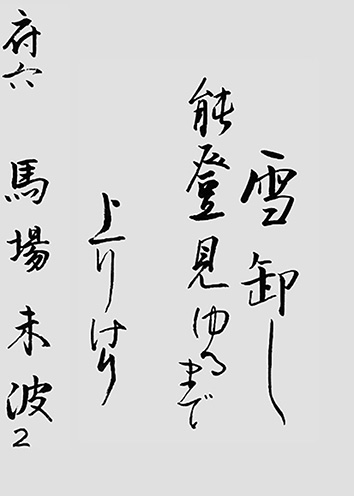 雪卸し
能登見ゆるまで
上りけり
府六 馬場未波2